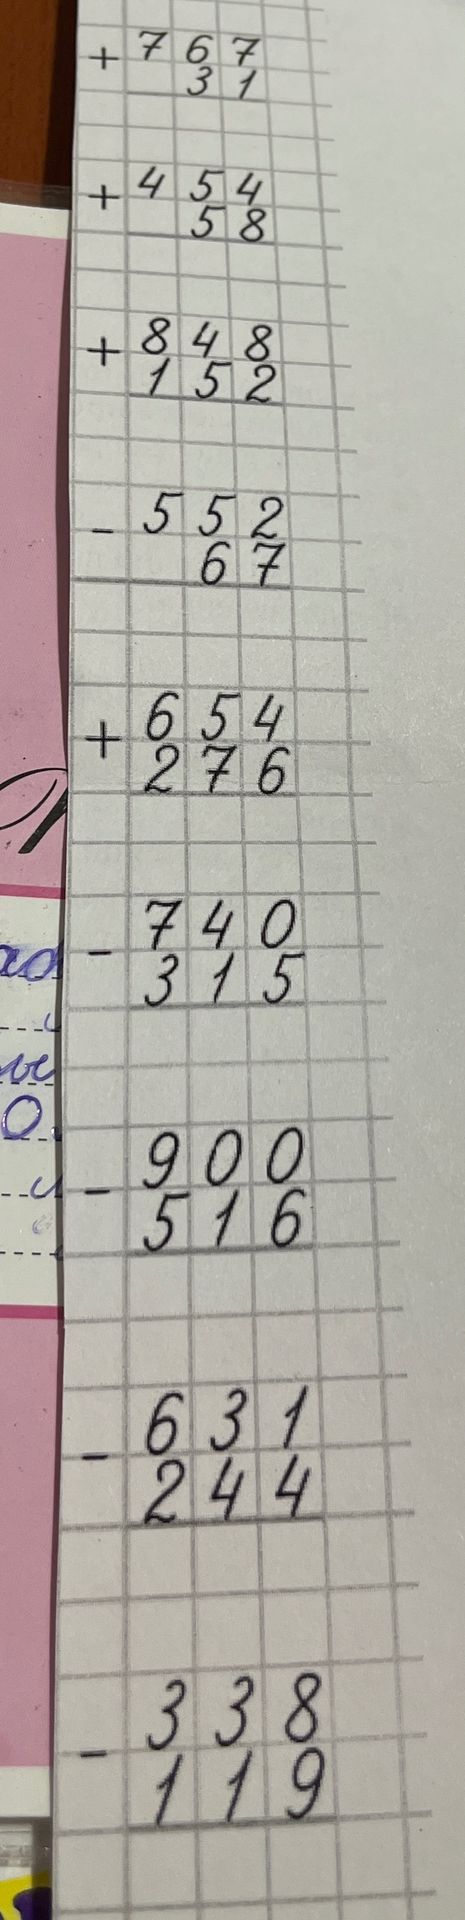 + 767
31
+ 454
58
+ 848
152
- 552
67
+ 654
276
- 740
315
- 900
516
- 631
244
- 338
119